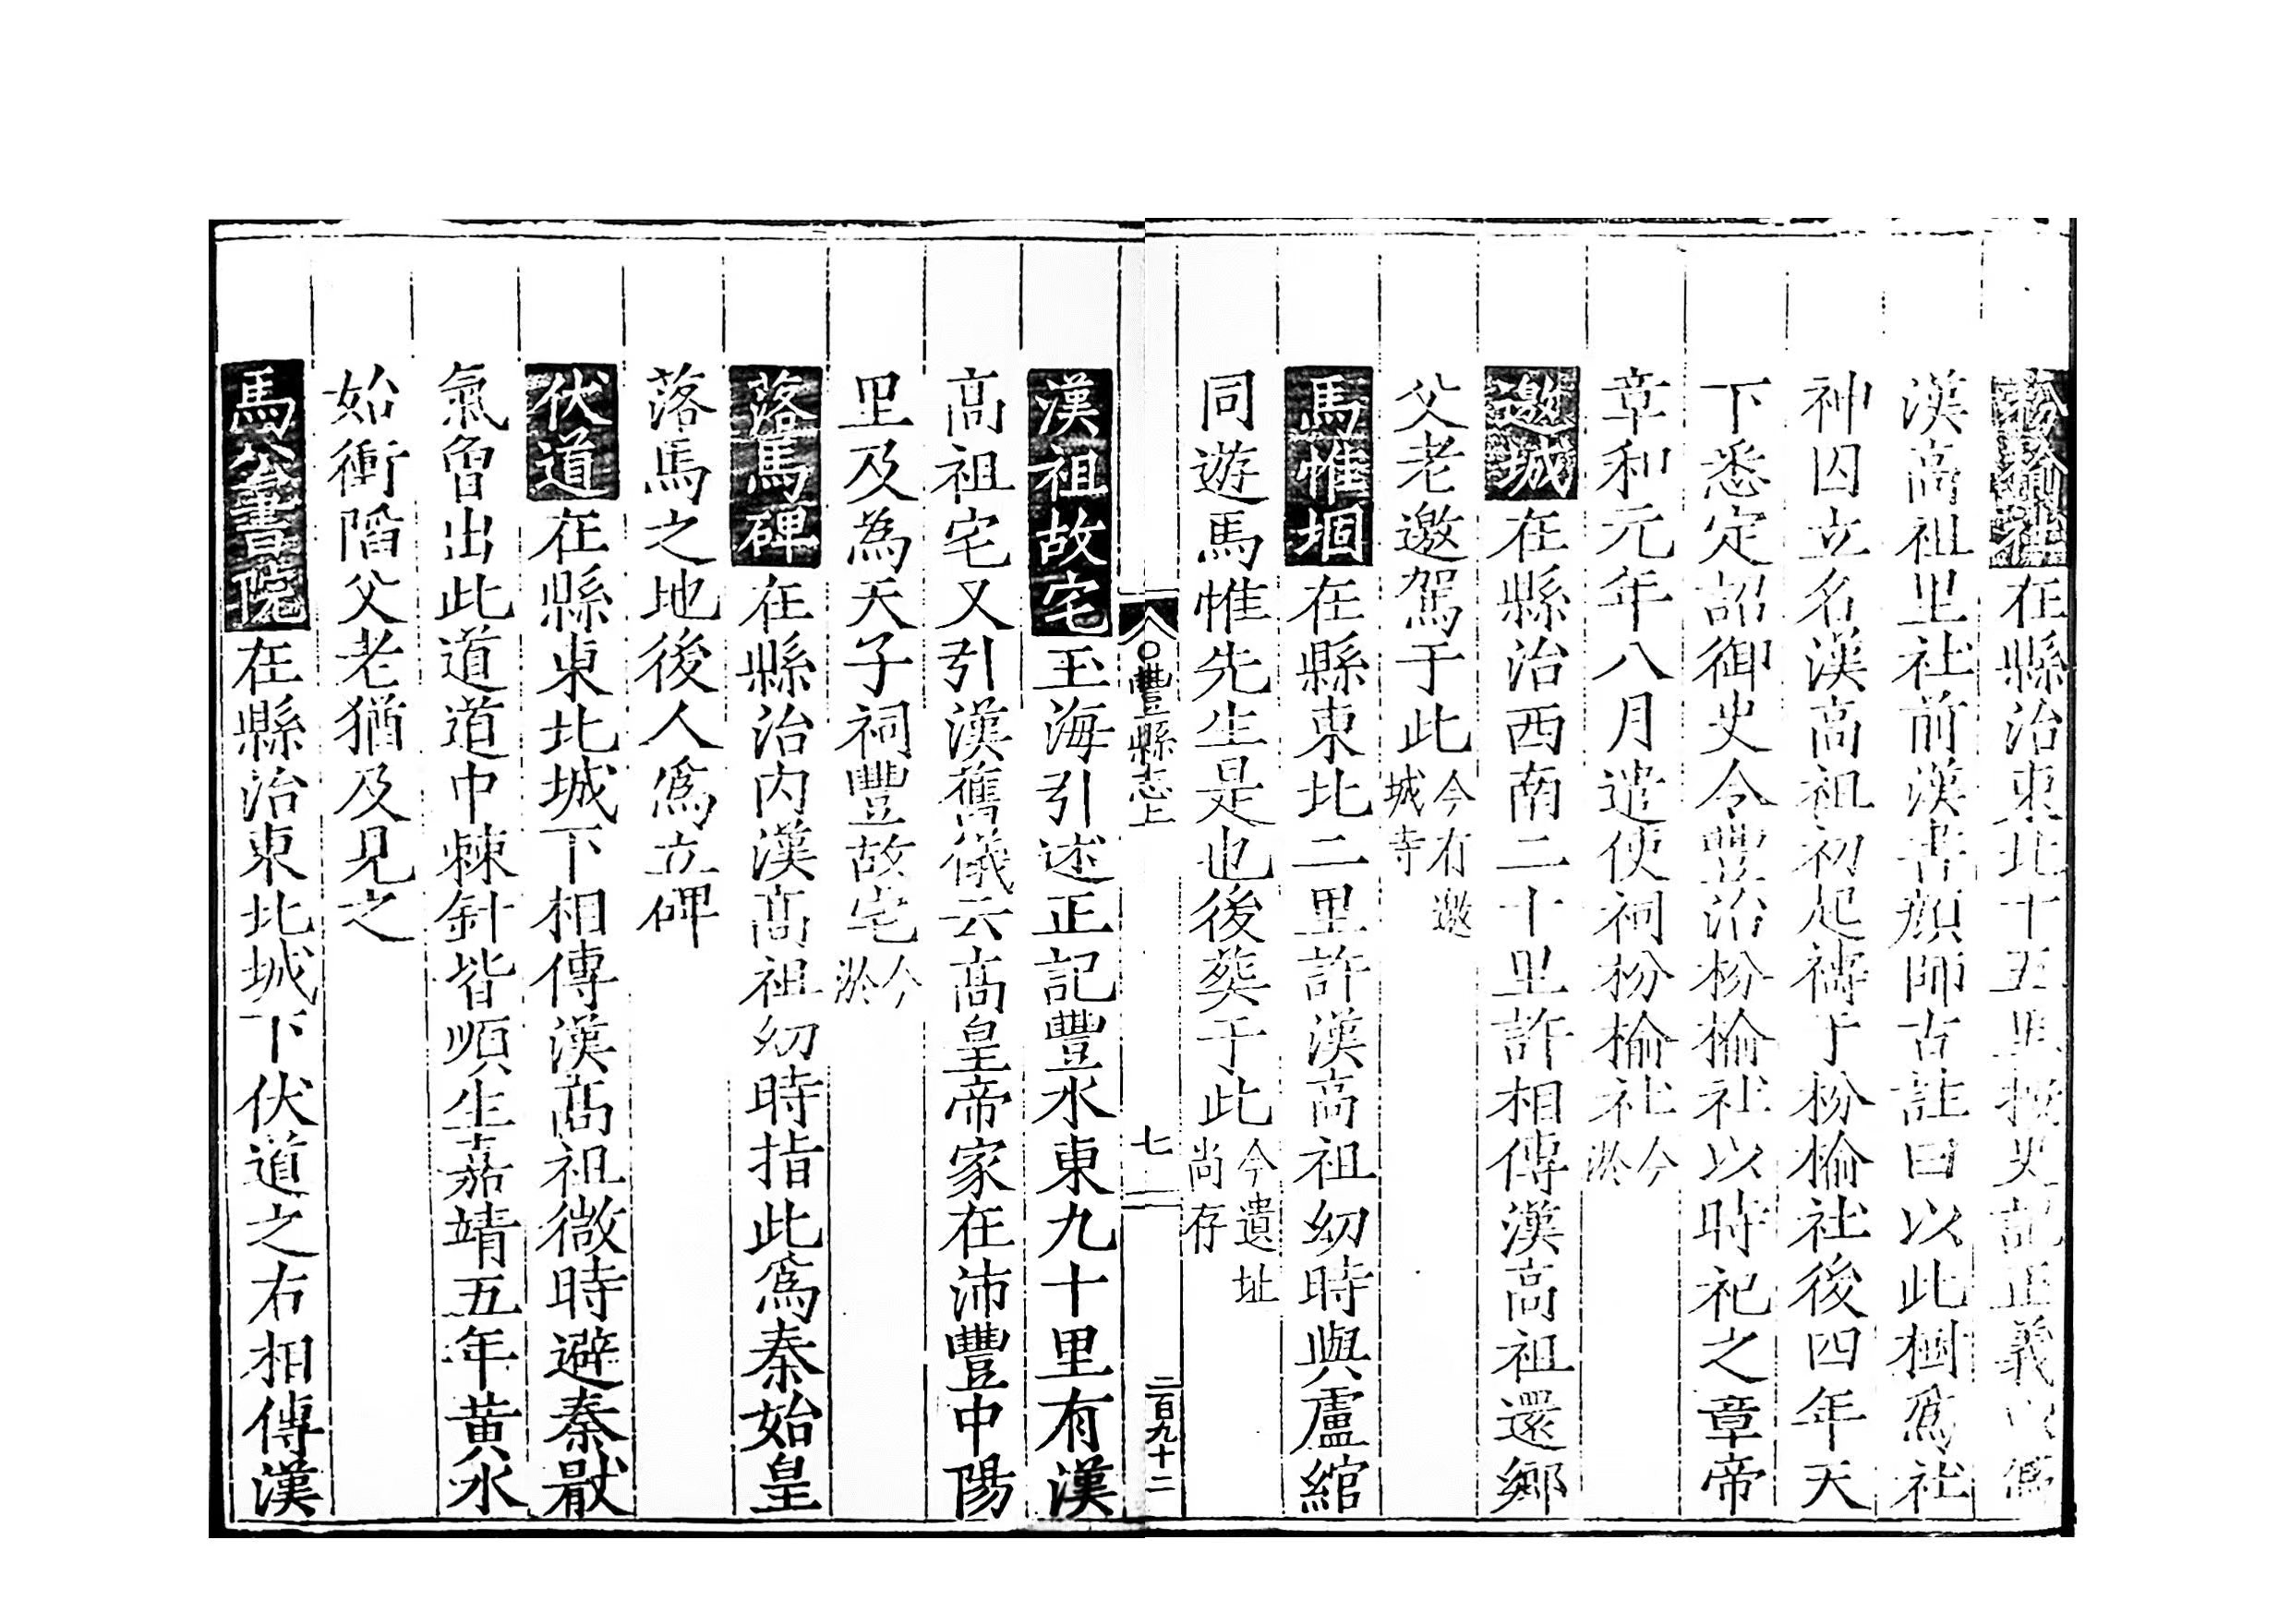 枌榆社在縣治東北十五里按史記正義以爲
漢高祖里社前漢書顏師古註曰以此樹爲社
神因立名漢高祖初起禱于枌榆社後四年天
下悉定詔御史令豐治枌榆社以時祀之章帝
章和元年八月遣使祠枌榆社今淤
邀城在縣治西南二十里許相傳漢高祖還鄉
父老邀駕于此今有邀城寺
馬惟堌在縣東北二里許漢高祖幼時與盧綰
同遊馬惟先生是也後葬于此今遺址尚存
豐縣志上
七
二百九十二
漢祖故宅玉海引述正記豐水東九十里有漢
高祖宅又引漢舊儀云高皇帝家在沛豐中陽
里及為天子祠豐故宅今淤
落馬碑在縣治內漢高祖幼時指此爲秦始皇
落馬之地後人爲立碑
伏道在縣東北城下相傳漢高祖微時避秦厭
氣曾出此道道中棘針皆順生嘉靖五年黃水
始衝陷父老猶及見之
馬公書院在縣治東北城下伏道之右相傳漢